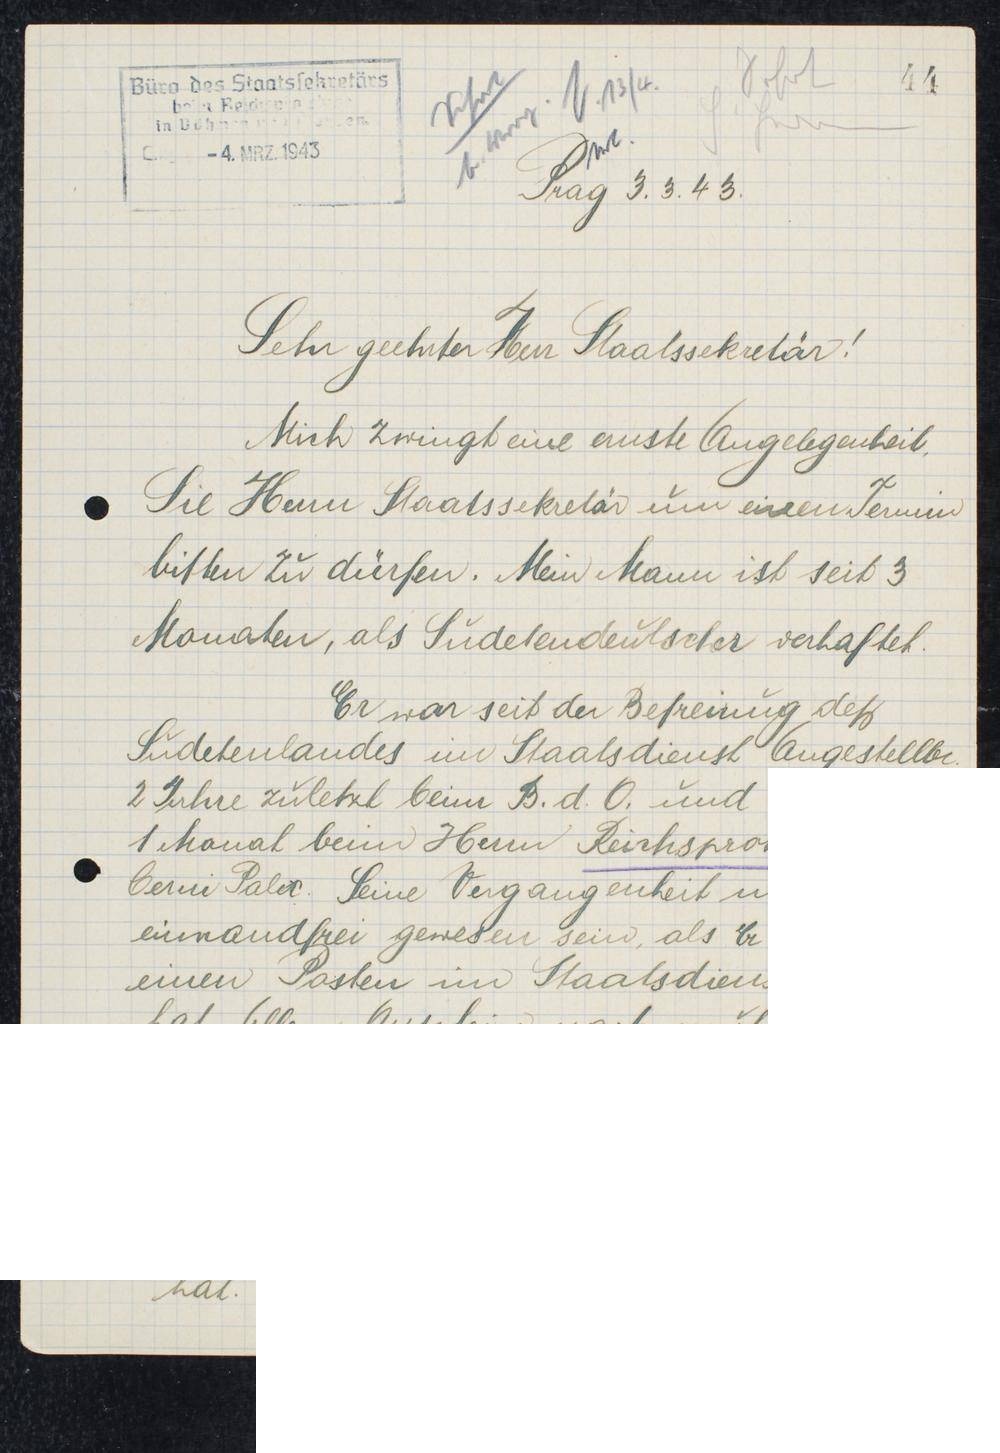 Büro des Staatssekretärs
beim Reichs
in Böhmen
-4. MRZ. 1943
13/4.
44
Prag 3.3.43.
Sehr geehrter Herr Staatssekretär!
Mich zwingt eine ernste Angelegenheit,
Sie Herrn Staatssekretär um einen Termin
bitten zu dürfen. Mein Mann ist seit 3
Monaten, als Sudetendeutscher verhaftet.
Er war seit der Befreiung deß
Sudetenlandes im Staatsdienst Angestellter.
2 Jahre zuletzt beim B. d. O. und
1 Monat beim Herrn Reichspro
Cerni Palec. Seine Vergangenheit
einwandfrei gewesen sein, als Er
einen Posten im Staatsdiens
hat
hat.